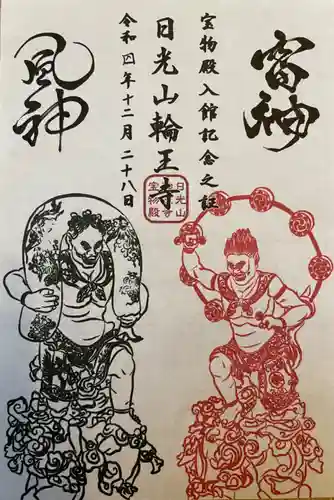 雷神
宝物殿入館記念之証
日光山輪王寺
令和四年十二月二十八日
風神
日光山
宝物殿